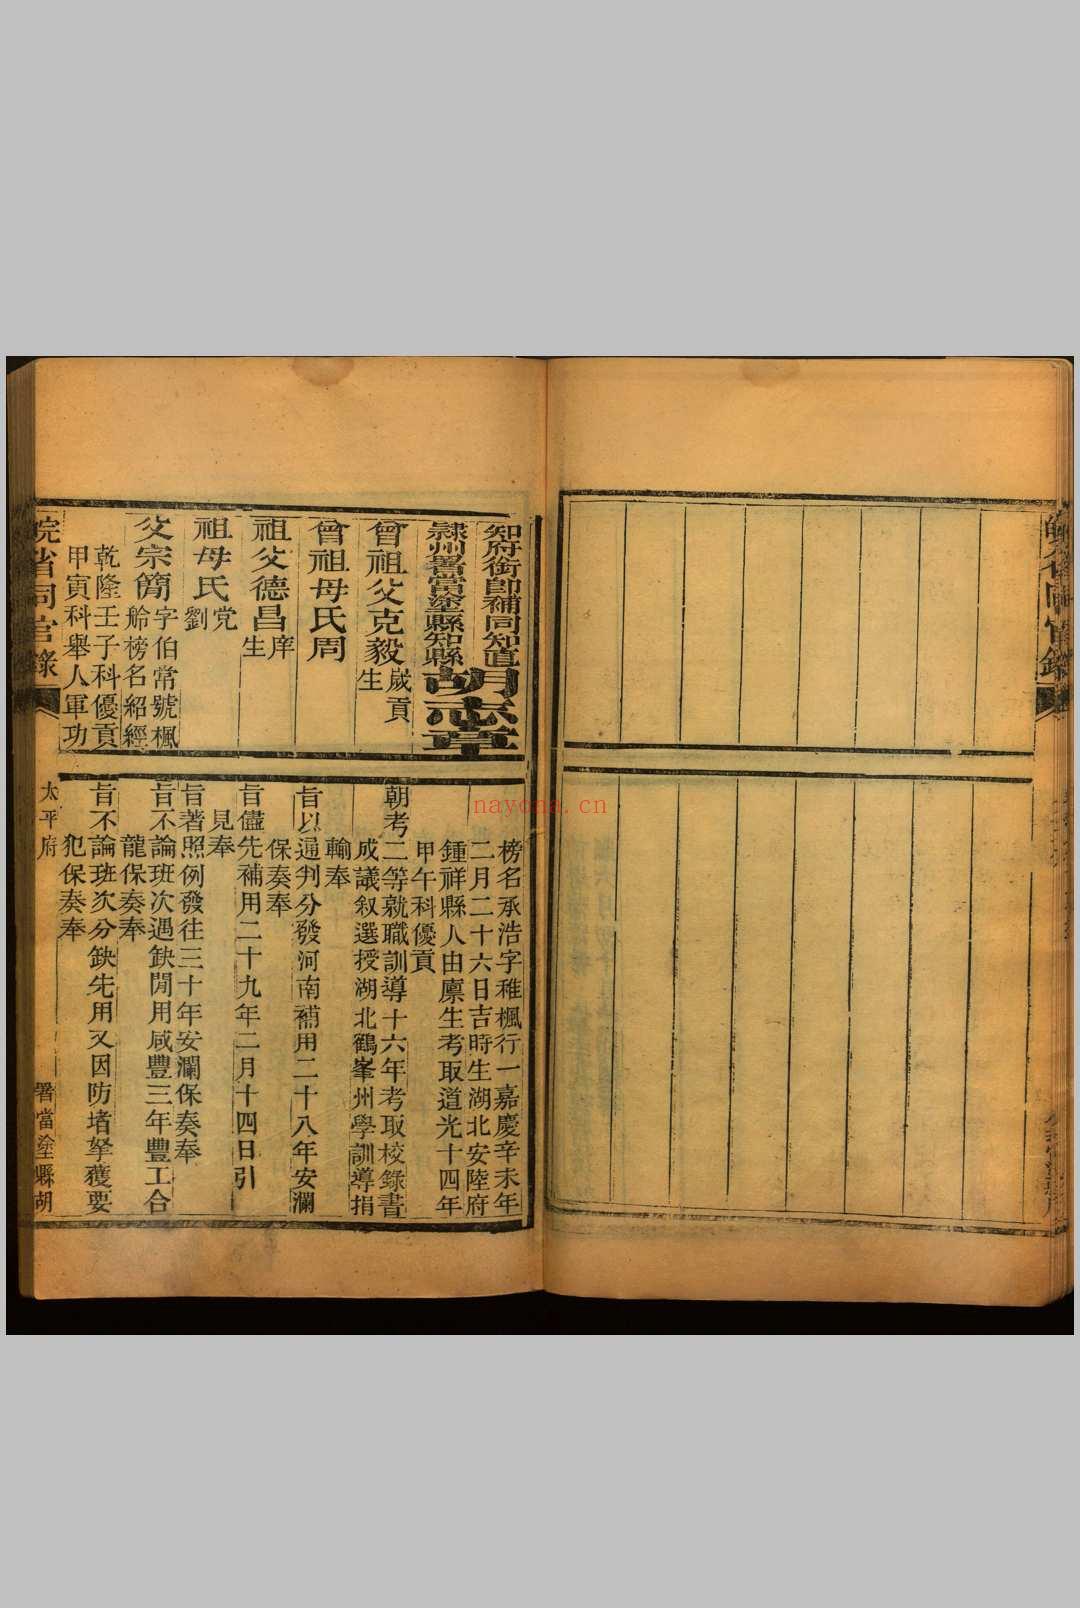 知府銜卽補同知直
隸州署當塗縣知縣
胡志章
曾祖父克毅歲貢
生
曾祖母氏周
祖父德昌庠
生
祖母氏党
劉
父宗簡字伯常號楓
舲榜名紹經
乾隆壬子科優貢
甲寅科舉人軍功
榜名承浩字稚楓行一嘉慶辛未年
二月二十六日吉時生湖北安陸府
鍾祥縣人由廩生考取道光十四年
甲午科優貢
朝考二等就職訓導十六年考取校錄書
成議叙選授湖北鶴峯州學訓導捐
輸奉
旨以通判分發河南補用二十八年安瀾
保奏奉
旨儘先補用二十九年二月十四日引
見奉
旨著照例發往三十年安瀾保奏奉
旨不論班次遇缺閒用咸豐三年豐工合
龍保奏奉
旨不論班次分缺先用又因防堵拏獲要
犯保奏奉
皖省同官錄
太平府
署當塗縣胡
nayona.cn